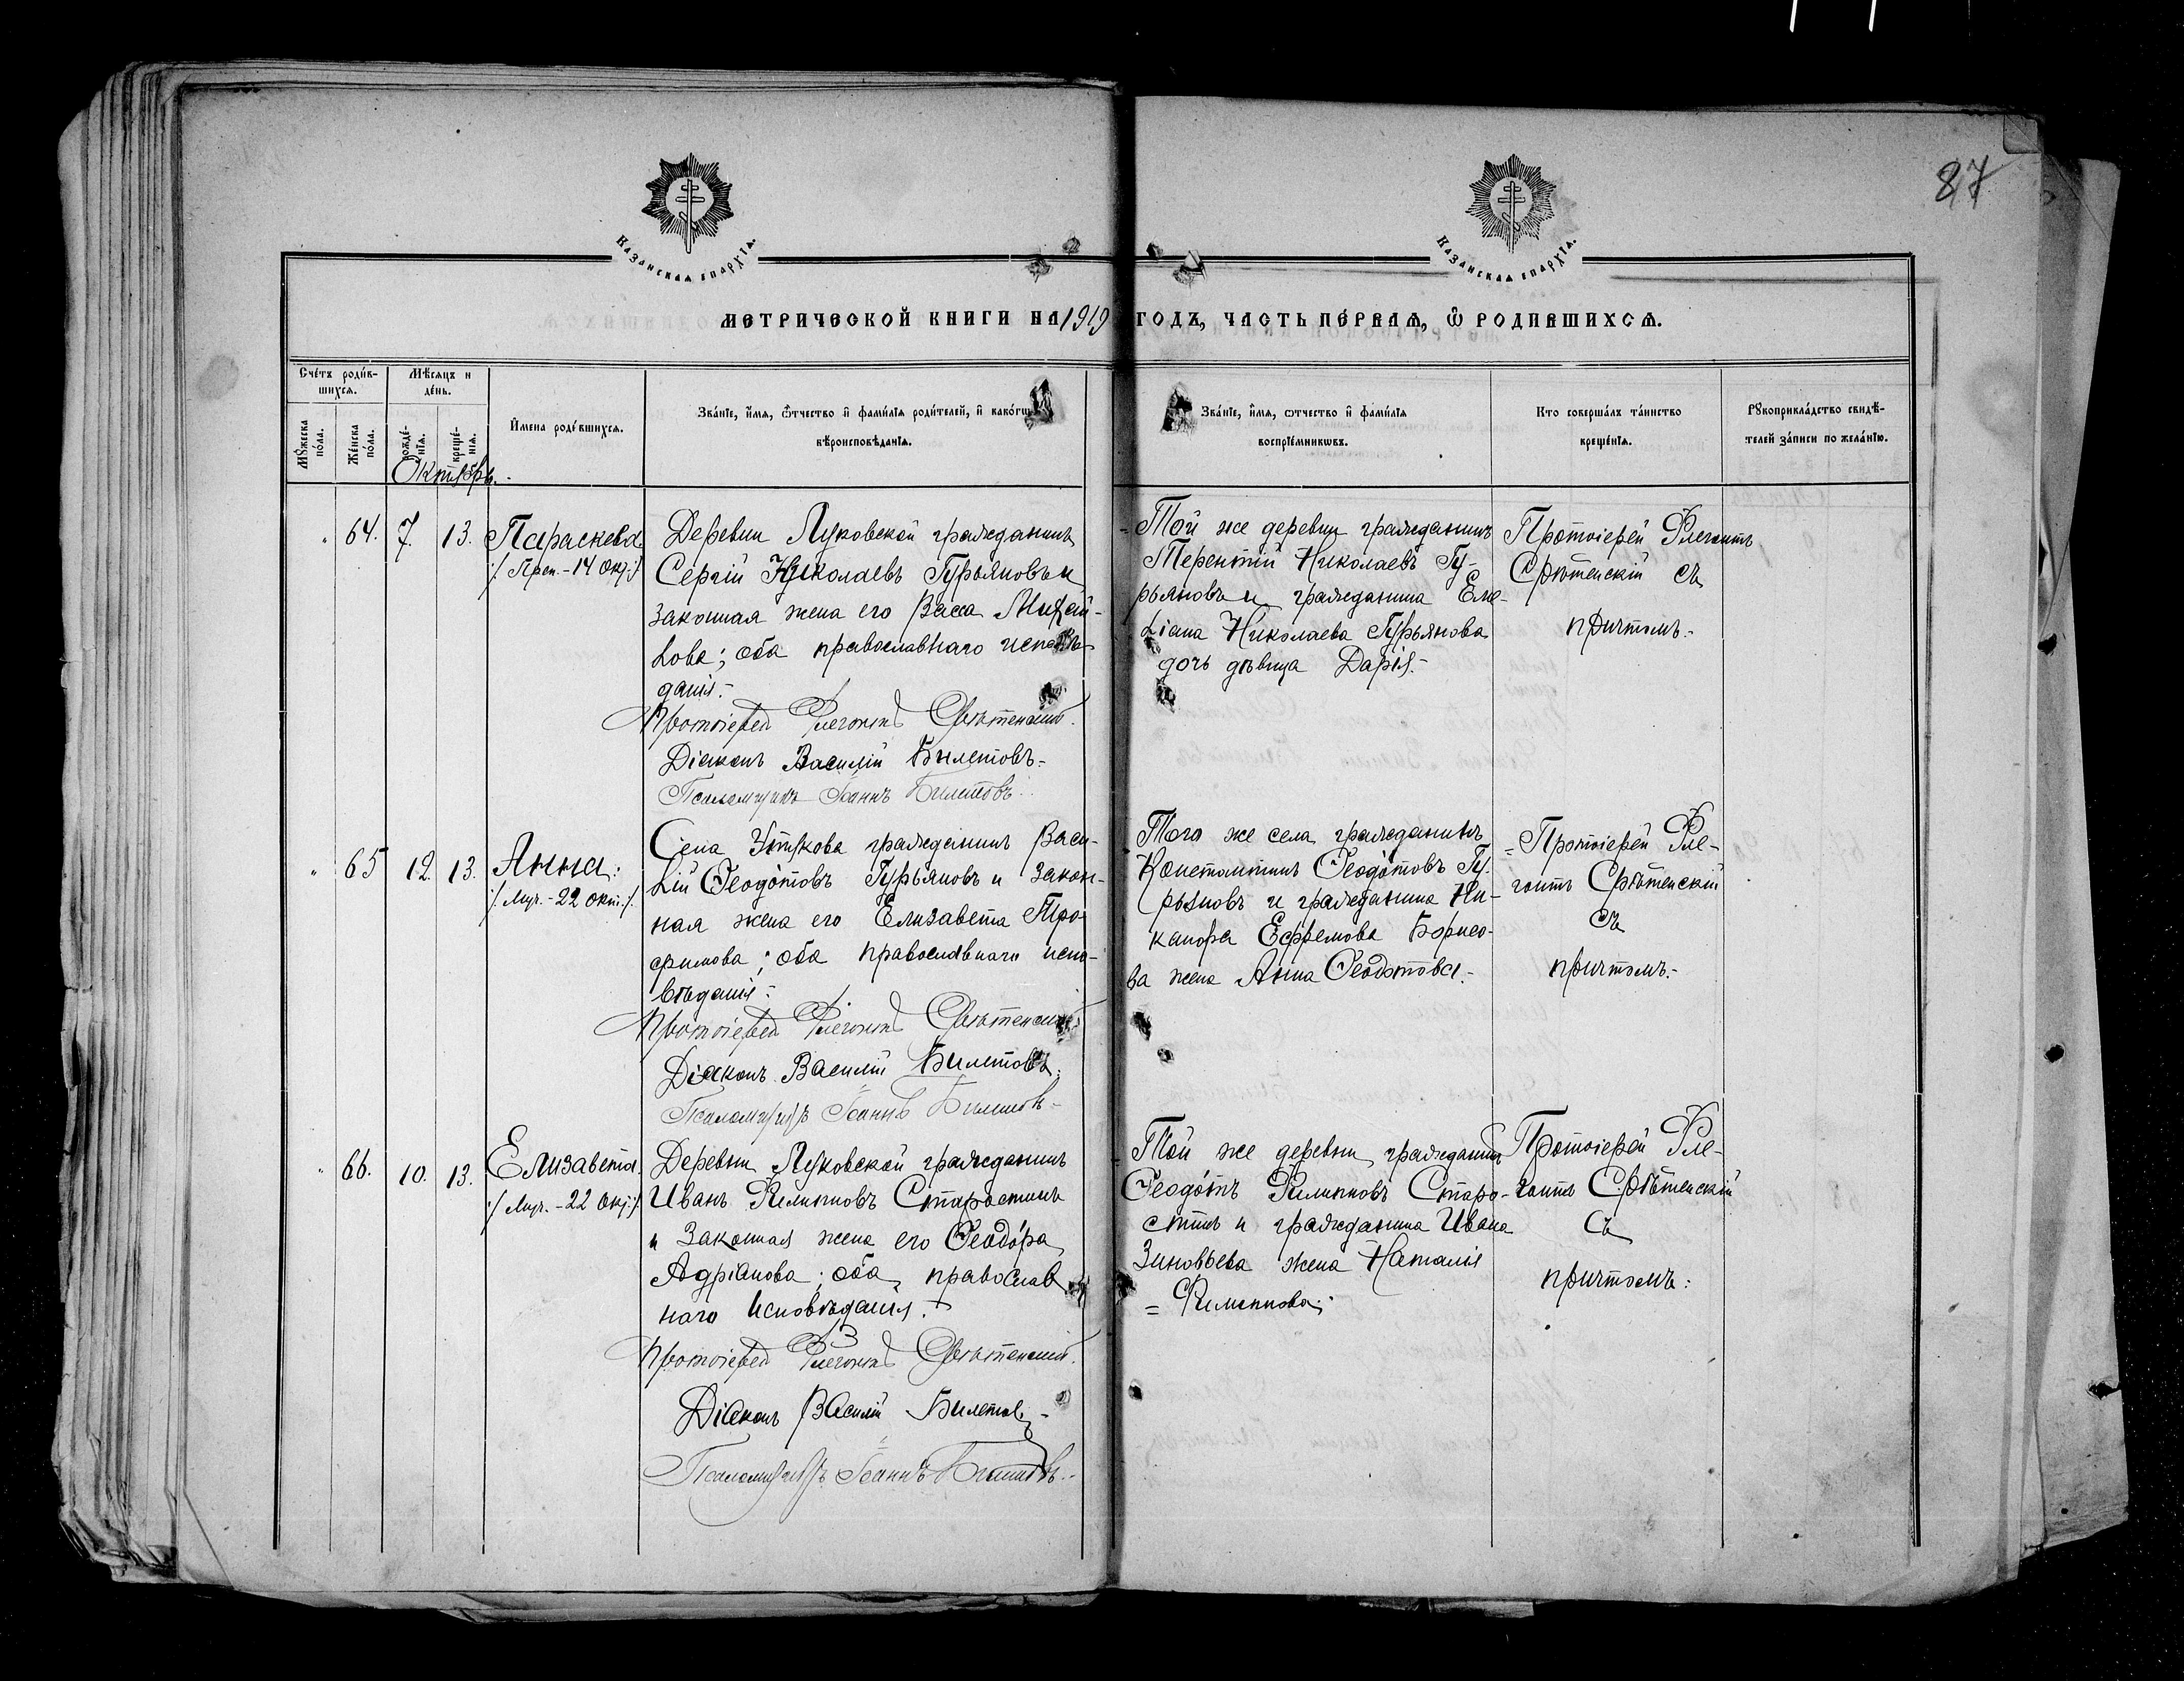 87
Казанская епархїя.
Казанская епархїя.
Метрической книги на 1919 годъ, часть пе́рвая, ѿ родившихся.
Сче́тъ роди́в-
шихся.
Мѣ́сяцъ и
де́нь.
Мꙋ́жеска
по́ла.
Же́нска
по́ла.
рожде́-
нїя.
креще́-
нїя.
И́мена роди́вшихся.
Зва́нїе, и́мя, ѻ҆́тчество и҆ фами́лїя роди́телей, и҆ како́гѡ
вѣроисповѣ́данїя.
Зва́нїе, и́мя, ѻтчество и҆ фами́лїя
воспрїе́мникѡвъ.
Кто соверша́лъ та́инство
креще́нїя.
Рꙋкоприкла́дство свидѣ́-
телей за́писи по жела́нїю.
Октябрь.
" 64. 7. 13. Параскева
/: Преп. - 14 Окт :/
Деревни Луковской гражданинъ
Сергій Николаевъ Гурьяновъ и
законная жена его Васса Михай-
лова; оба православнаго исповѣ-
данія.-
Протоіерей Флегонтъ Срѣтенскій.
Діаконъ Василій Билетовъ.-
Псаломщикъ Іоаннъ Билетовъ.
Той же деревни гражданинъ
Терентій Николаевъ Гу-
рьяновъ и гражданина Еме-
ліана Николаева Гурьянова
дочь дѣвица Дарія.-
Протоіерей Флегонтъ
Срѣтенскій съ
причтомъ.-
" 65 12. 13. Анна:
/: Муч. - 22 окт. :/
Села Утякова гражданинъ Васи-
лій Ѳеодотовъ Гурьяновъ и закон-
ная жена его Елизавета Тро-
фимова; оба православнаго испо-
вѣданія.-
Протоіерей Флегонтъ Срѣтенскій
Діаконъ Василій Билетовъ.
Псаломщикъ Іоаннъ Билетовъ-
Того же села гражданинъ
Константинъ Ѳеодотовъ Гу-
рьяновъ и гражданина Ни-
канора Ефремова Борисо-
ва жена Анна Ѳеодотова.-
= Протоіерей Фле-
гонтъ Срѣтенскій
съ
причтомъ.-
" 66. 10. 13. Елизавета.
/: Муч. - 22 Окт :/
Деревни Луковской гражданинъ
Иванъ Филипповъ Старостинъ
и законная жена его Ѳеодора
Адріанова; оба православ
наго исповѣданія.-
Протоіерей Флегонтъ Срѣтенскій.
Діаконъ Василій Билетовъ-
Псаломщикъ Іоаннъ Билетовъ.-
Той же деревни гражданинъ
Ѳеодотъ Филипповъ Старо-
стинъ и гражданина Ивана
Зиновьева жена Наталія
= Филиппова.-
Протоіерей Фле-
гонтъ Срѣтенскій
Съ
причтомъ: